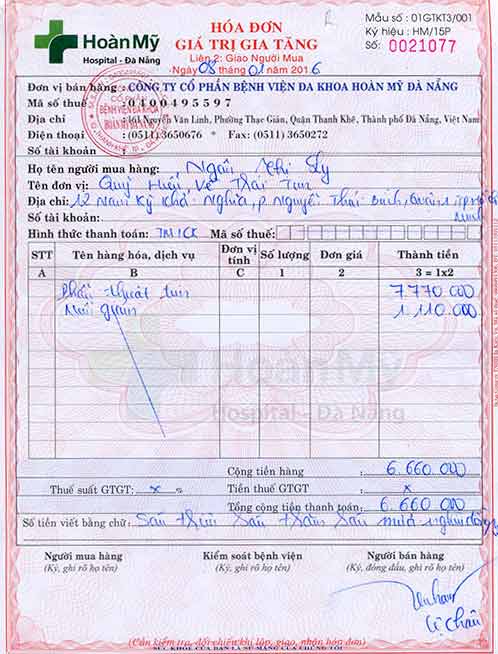 HoànMỹ
Hospital - Đà Nẵng
HÓA ĐƠN
GIÁ TRỊ GIA TĂNG
Liên 2: Giao Người Mua
Ngày 08 tháng 01 năm 2016
Mẫu số : 01GTKT3/001
Ký hiệu : HM/15P
Số: 0021077
Đơn vị bán hàng : CÔNG TY CỔ PHẦN BỆNH VIỆN ĐA KHOA HOÀN MỸ ĐÀ NẴNG
Mã số thuế : 0400495597
Địa chỉ : 161 Nguyễn Văn Linh, Phường Thạc Gián, Quận Thanh Khê, Thành phố Đà Nẵng, Việt Nam
Điện thoại : (0511) 3650676 * Fax: (0511) 3650272
Số tài khoản :
Họ tên người mua hàng: Ngôn Thị Sly
Tên đơn vị: Quỹ Hiểi Về Trái Tim
Địa chỉ: 12 Nam Kỳ Khởi Nghĩa, P. Nguyễn Thái Bình, Quận 1
Số tài khoản:
Hình thức thanh toán: TM/CK Mã số thuế:
STT Tên hàng hóa, dịch vụ Đơn vị tính Số lượng Đơn giá Thành tiền
A B C 1 2 3 = 1x2
Phẫu thuật tim 7770000
Miễn giảm 1.110.000
HoànMỹ
Hospital - Đà Nẵng
Cộng tiền hàng : 6.660.000
Thuế suất GTGT: x % Tiền thuế GTGT : x
Tổng cộng tiền thanh toán: 6.660.000
Số tiền viết bằng chữ: Sáu triệu sáu trăm sáu mươi nghìn đồng
Người mua hàng Kiểm soát bệnh viện Người bán hàng
(Ký, ghi rõ họ tên) (Ký, ghi rõ họ tên) (Ký, đóng dấu, ghi rõ họ tên)
(Cần kiểm tra, đối chiếu khi lập, giao, nhận hóa đơn)
SỨC KHỎE CỦA BẠN LÀ SỨ MẠNG CỦA CHÚNG TÔI